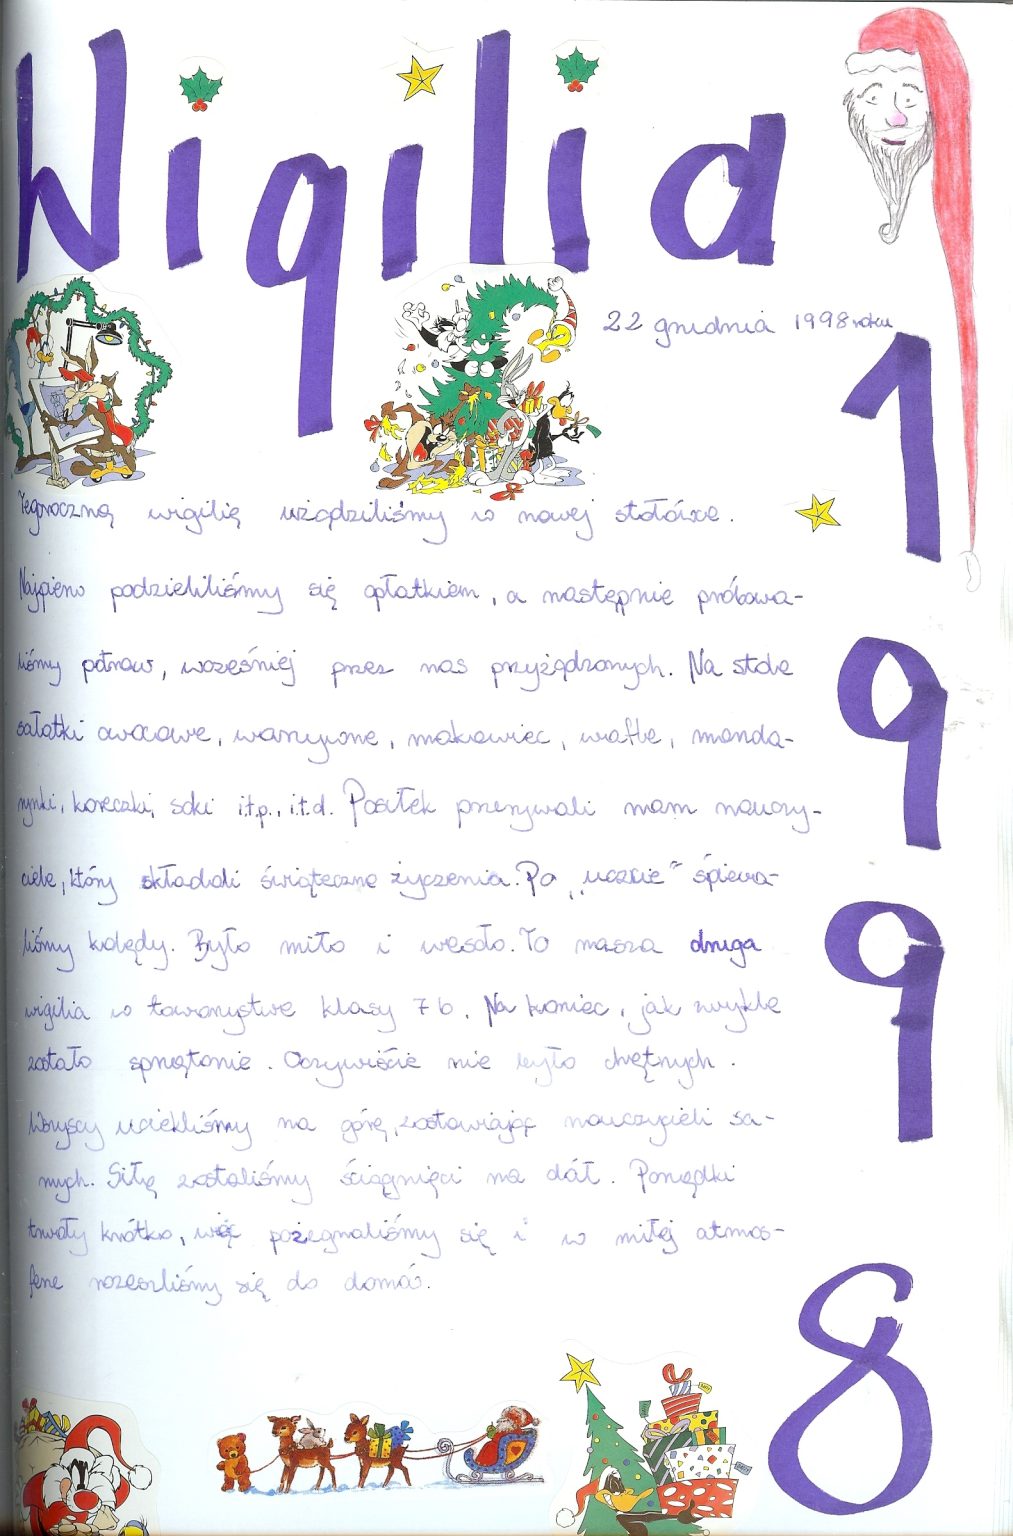 Wigilia
22 grudnia 1998 roku
1998
Tegoroczną wigilię urządziliśmy w nowej stołówce.
Najpierw podzieliliśmy się opłatkiem, a następnie próbowa-
liśmy potraw, wcześniej przez nas przyżądzonych. Na stole
sałatki owocowe, warzywne, makowiec, wafle, manda-
rynki, koreczki, soki i.t.p., i.t.d. Posiłek przerywali nam nauczy-
ciele, którzy składali świąteczne życzenia. Po „uczcie” śpiewa-
liśmy kolędy. Było miło i wesoło. To nasza druga
wigilia w towarzystwie klasy 7b. Na koniec, jak zwykle
zostało sprzątanie. Oczywiście nie było chętnych.
Wszyscy uciekliśmy na górę, zostawiając nauczycieli sa-
mych. Siłą zostaliśmy ściągnięci na dół. Porządki
trwały krótko, więc pożegnaliśmy się i w miłej atmos-
ferze rozeszliśmy się do domów.